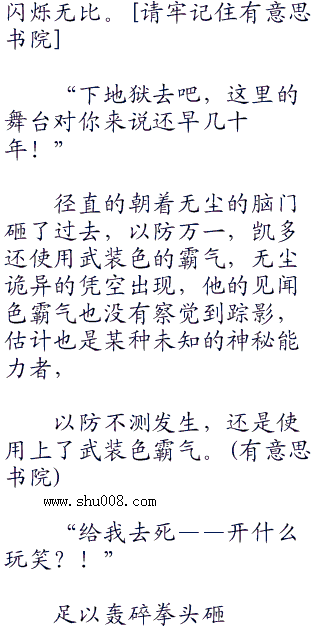 闪烁无比。[请牢记住有意思
书院]
“下地狱去吧，这里的
舞台对你来说还早几十
年！”
径直的朝着无尘的脑门
砸了过去，以防万一，凯多
还使用武装色的霸气，无尘
诡异的凭空出现，他的见闻
色霸气也没有察觉到踪影，
估计也是某种未知的神秘能
力者，
以防不测发生，还是使
用上了武装色霸气。(有意思
书院)
www.shu008.com
“给我去死——开什么
玩笑？！”
足以轰碎拳头砸